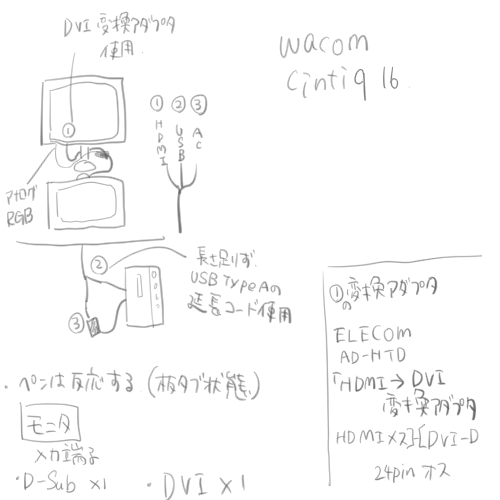 DVI 変換アダプタ
使用
wacom
Cintiq 16
① ② ③
HDMI
USB
AC
①
アナログ
RGB
②
長さ足りず
USB Type Aの
延長コード使用
③
①の変換アダプタ
ELECOM
AD-HTD
「HDMI→DVI
変換アダプタ
HDMIメス][DVI-D
24pin オス
・ペンは反応する (板タブ状態)
モニタ
入力端子
・D-Sub ×1
・DVI ×1